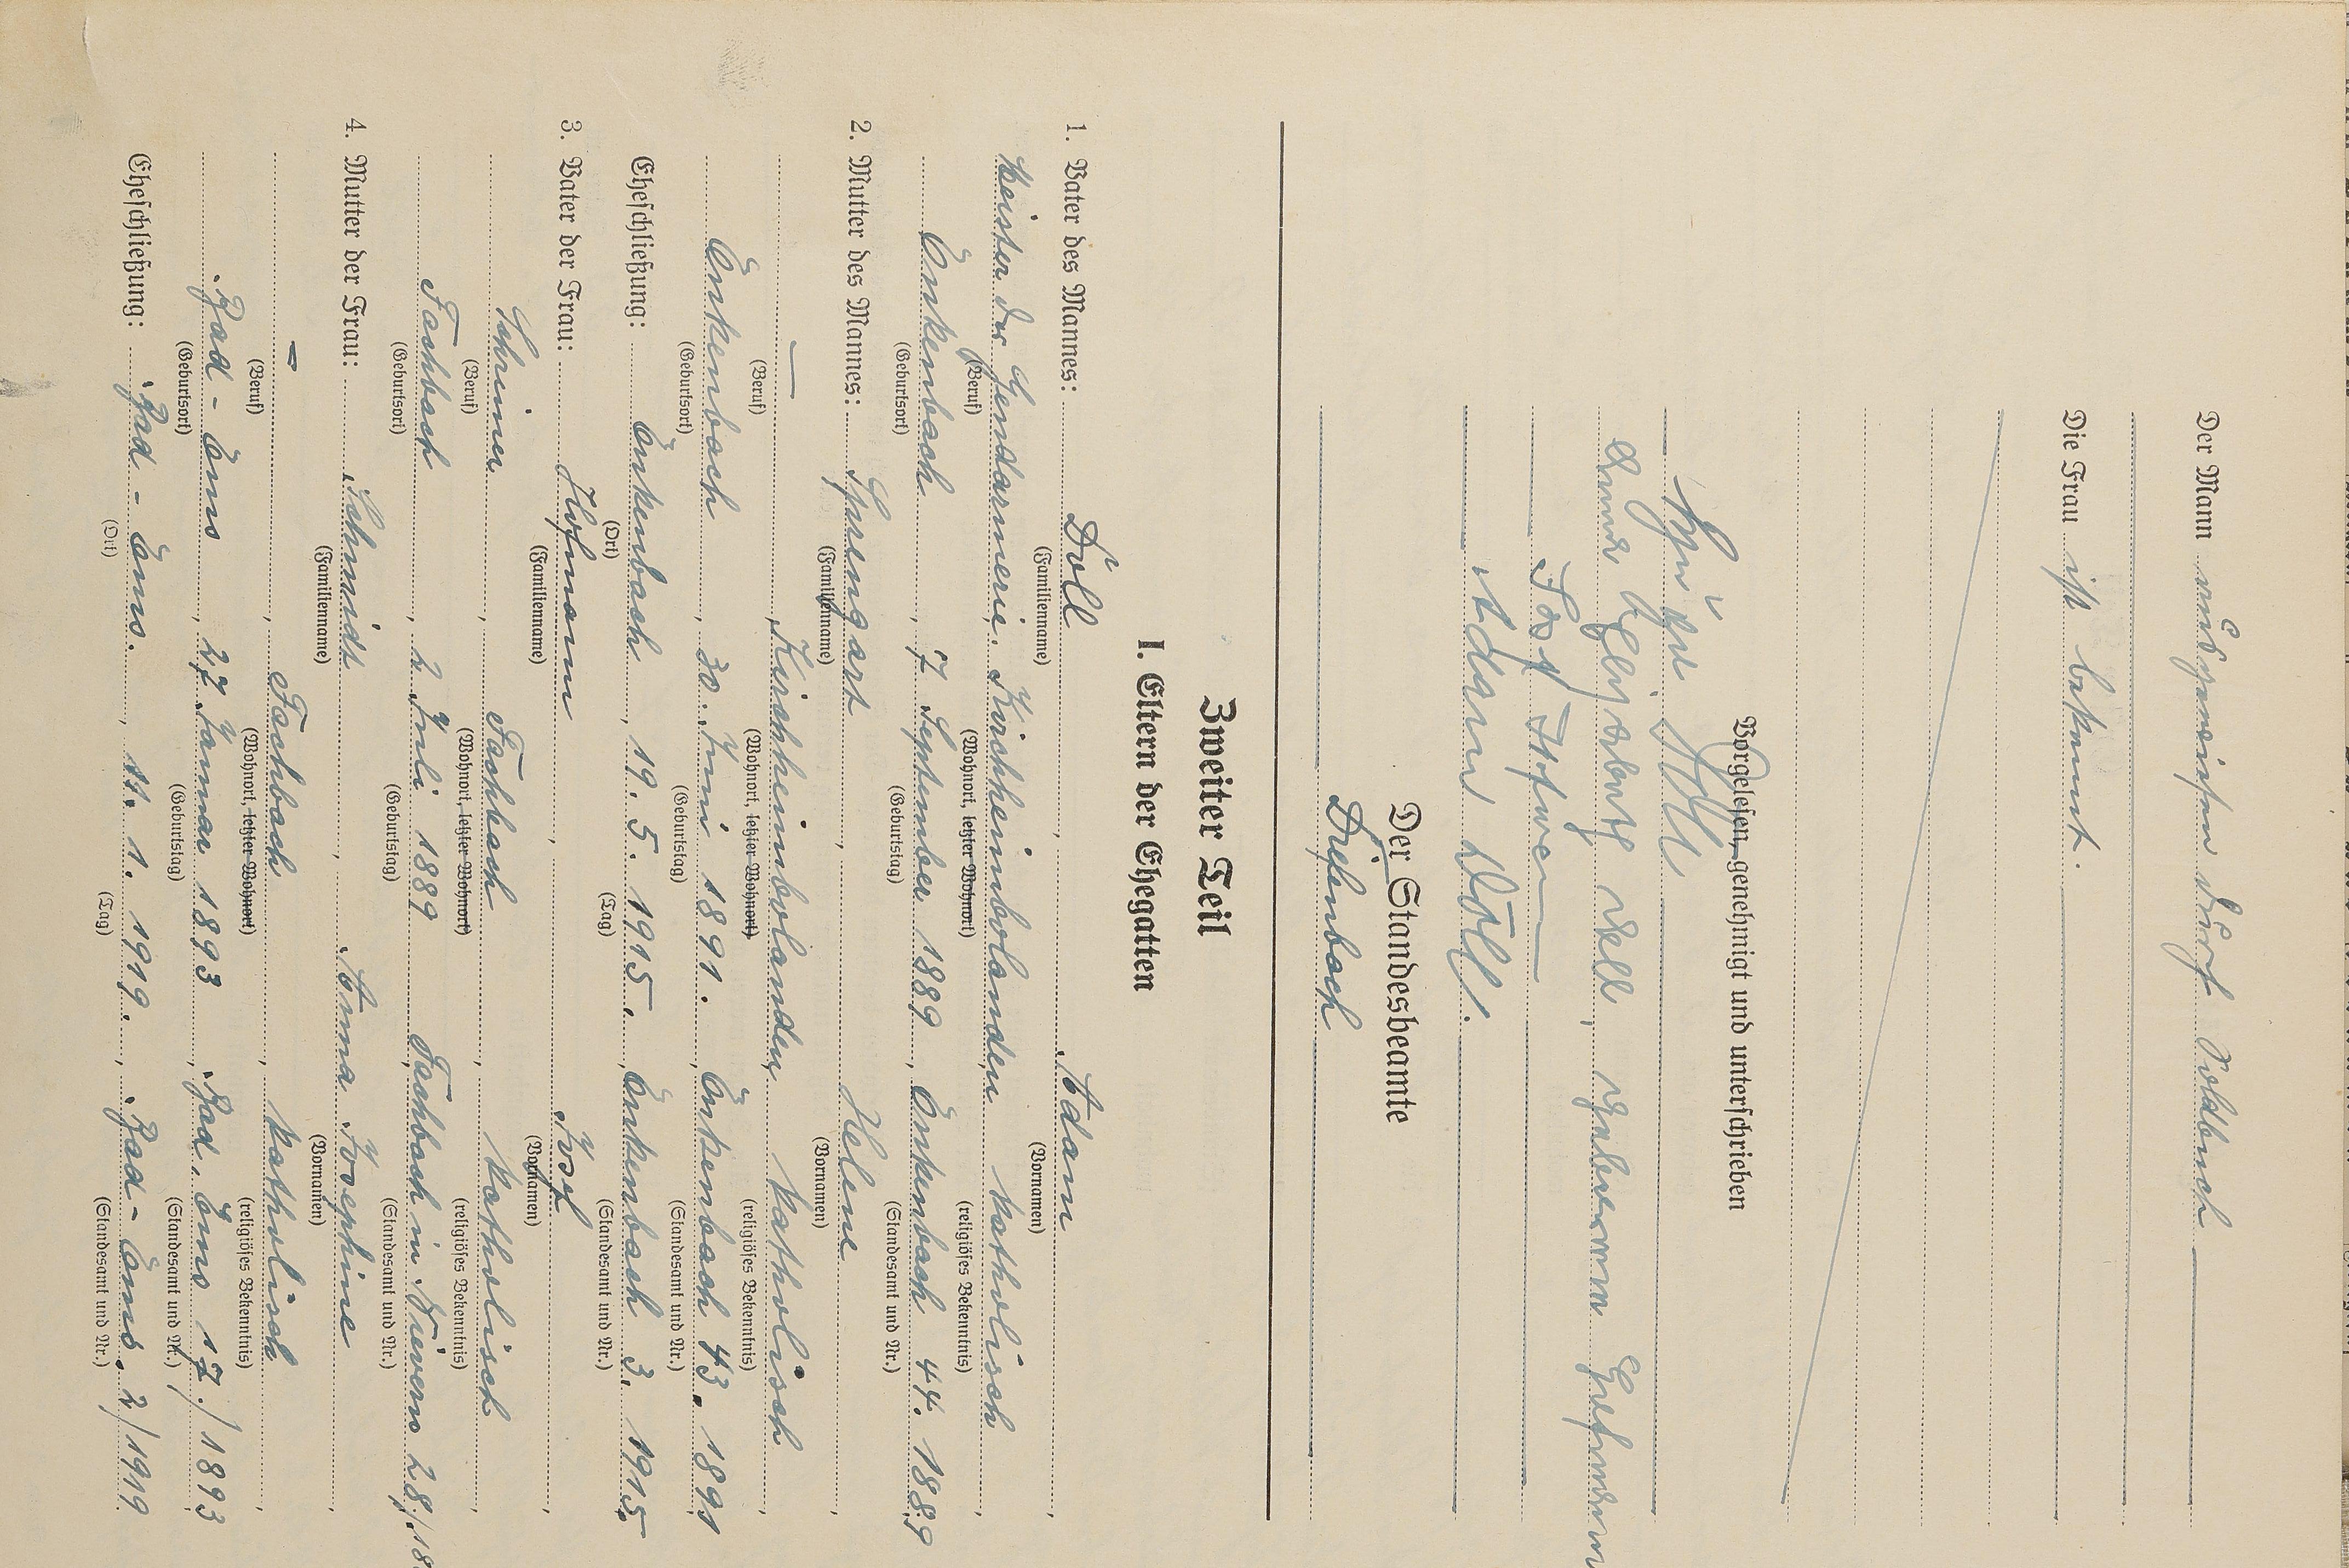 Der Mann ausgewiesen durch Soldbuch
Die Frau ist bekannt.
Vorgelesen, genehmigt und unterschrieben
Döll
Anna Elisabeth Döll, geborene Hofmann
Josef Hofmann
Adam Döll.
Der Standesbeamte
Diefenbach
Zweiter Teil
I. Eltern der Ehegatten
1. Vater des Mannes: Döll, Adam,
(Familienname) (Vornamen)
Meister der Gendarmerie. Kirchheimbolanden, katholisch,
(Beruf) (Wohnort, letzter Wohnort) (religiöses Bekenntnis)
Enkenbach, 7 September 1889, Enkenbach 44. 1889
(Geburtsort) (Geburtstag) (Standesamt und Nr.)
2. Mutter des Mannes: Spengart, Helene,
(Familienname) (Vornamen)
—, Kirchheimbolanden, katholisch,
(Beruf) (Wohnort, letzter Wohnort) (religiöses Bekenntnis)
Enkenbach, 30. Juni 1891., Enkenbach 43. 1891
(Geburtsort) (Geburtstag) (Standesamt und Nr.)
Eheschließung: Enkenbach, 19. 5. 1915., Enkenbach 3. 1915.
(Ort) (Tag) (Standesamt und Nr.)
3. Vater der Frau: Hofmann, Josef,
(Familienname) (Vornamen)
Schreiner, Fachbach, katholisch,
(Beruf) (Wohnort, letzter Wohnort) (religiöses Bekenntnis)
Fachbach, 2 Juli 1889, Fachbach in Nievern 28./18
(Geburtsort) (Geburtstag) (Standesamt und Nr.)
4. Mutter der Frau: Schmidt, Anna Josephine,
(Familienname) (Vornamen)
-, Fachbach, katholisch,
(Beruf) (Wohnort, letzter Wohnort) (religiöses Bekenntnis)
Bad-Ems, 27. Januar 1893, Bad. Ems 17./1893
(Geburtsort) (Geburtstag) (Standesamt und Nr.)
Eheschließung: Bad-Ems., 11. 1. 1919., Bad-Ems. 2/1919
(Ort) (Tag) (Standesamt und Nr.)